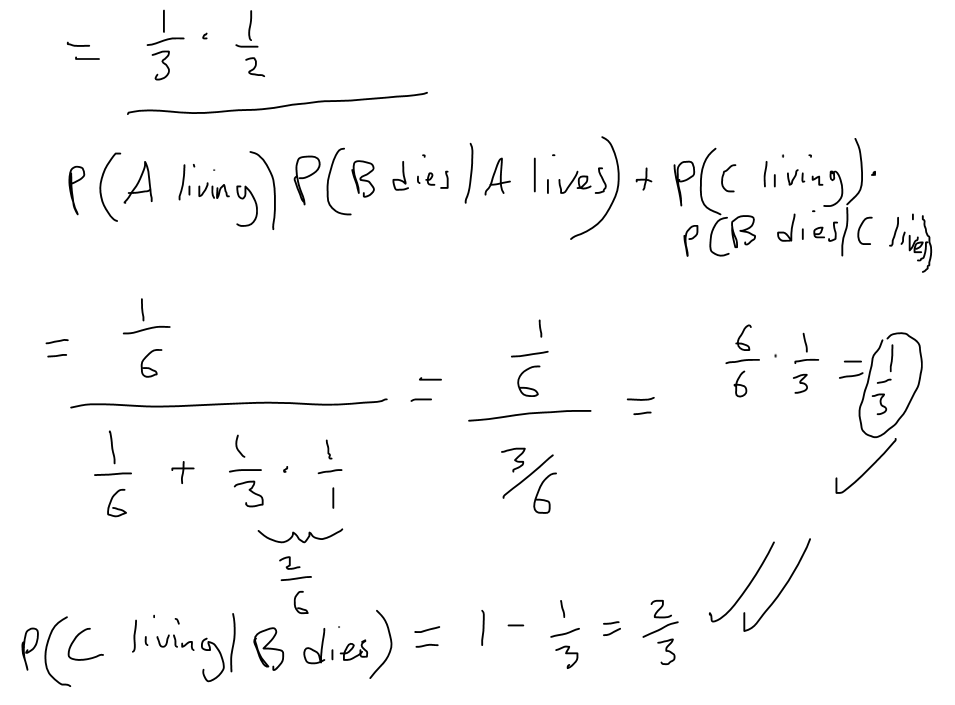 = 1/3 · 1/2
P(A living) P(B dies | A lives) + P(C living) ·
P(B dies | C lives)
= (1/6) / (1/6 + 1/3 · 1/1) = (1/6) / (3/6) = 6/6 · 1/3 = 1/3 ✓
2/6
P(C living | B dies) = 1 - 1/3 = 2/3 ✓✓